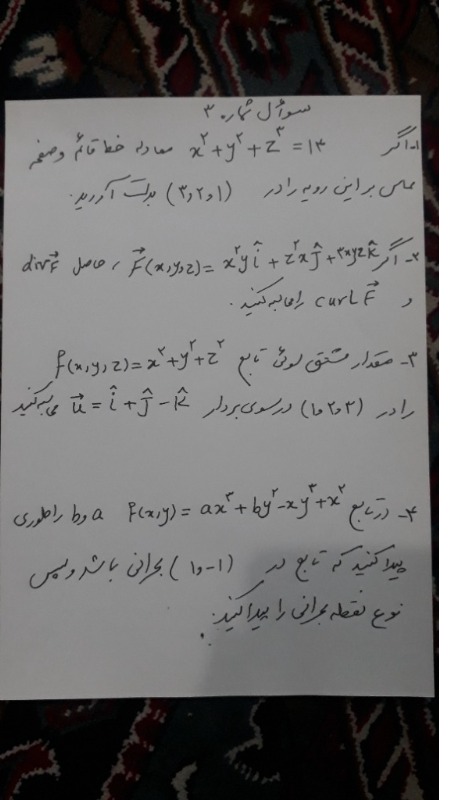 سوال شماره ۳
۱- اگر x^۲+y^۲+z^۳=۱۴ معادله خط قائم و صفحه
مماس بر این رویه را در (۱و۲و۳) بدست آورید.
۲- اگر F⃗(x,y,z)=x^۲y î + z^۲x ĵ + ۳xyz k̂ ، حاصل div F⃗
و curl F⃗ را محاسبه کنید.
۳- مقدار مشتق سوئی تابع f(x,y,z)=x^۲+y^۲+z^۲
را در (۱و۲و۳) در سوی بردار u⃗ = î + ĵ - k̂ محاسبه کنید
۴- در تابع f(x,y)=ax^۳+by^۲-xy^۳+x^۲ a و b را طوری
پیدا کنید که تابع در (۱و-۱) بحرانی باشد و سپس
نوع نقطه بحرانی را پیدا کنید.